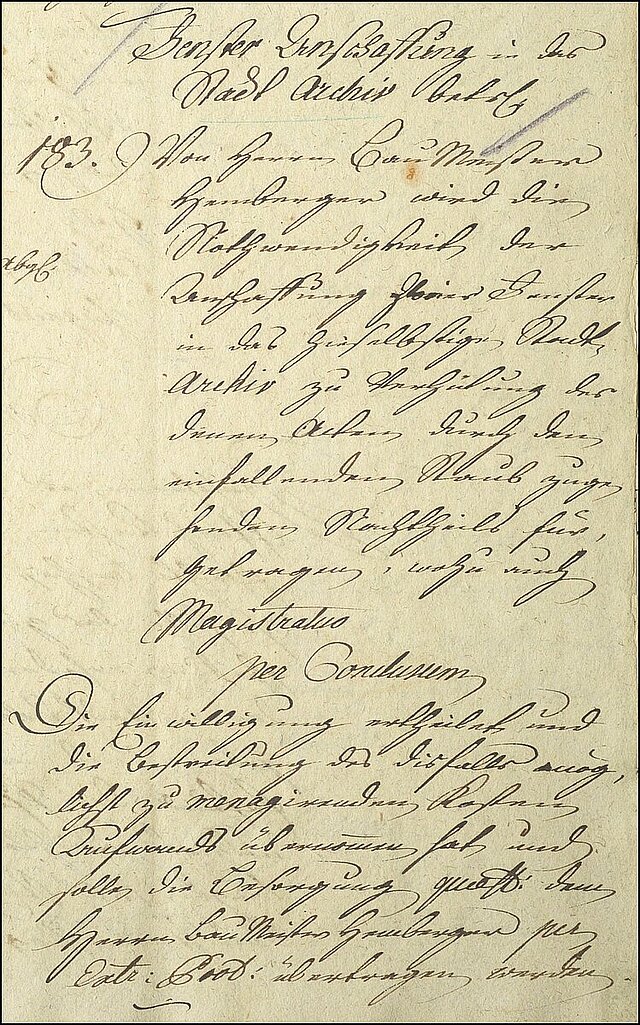 Fenster Anschaffung in das
Stadt Archiv betr.
183.) Von Herrn BauMeister
Hemberger wird die
Nothwendigkeit der
abgs.
Anschaffung Fenster
in das hieselbstige Stadt-
Archiv zu Verhütung des
denen Acten durch den
einfallenden Staub zuge-
henden Nachtheils für-
getragen, wozu auch
Magistratus
per Conclusum
Die Einwilligung ertheilet und
die Bestreitung des disfalls mög-
lichst zu menagirenden Kosten
Aufwands übernommen hat und
solle die Besorgung quaest: dem
Herrn BauMeister Hemberger per
Extr: Prot: übertragen werden